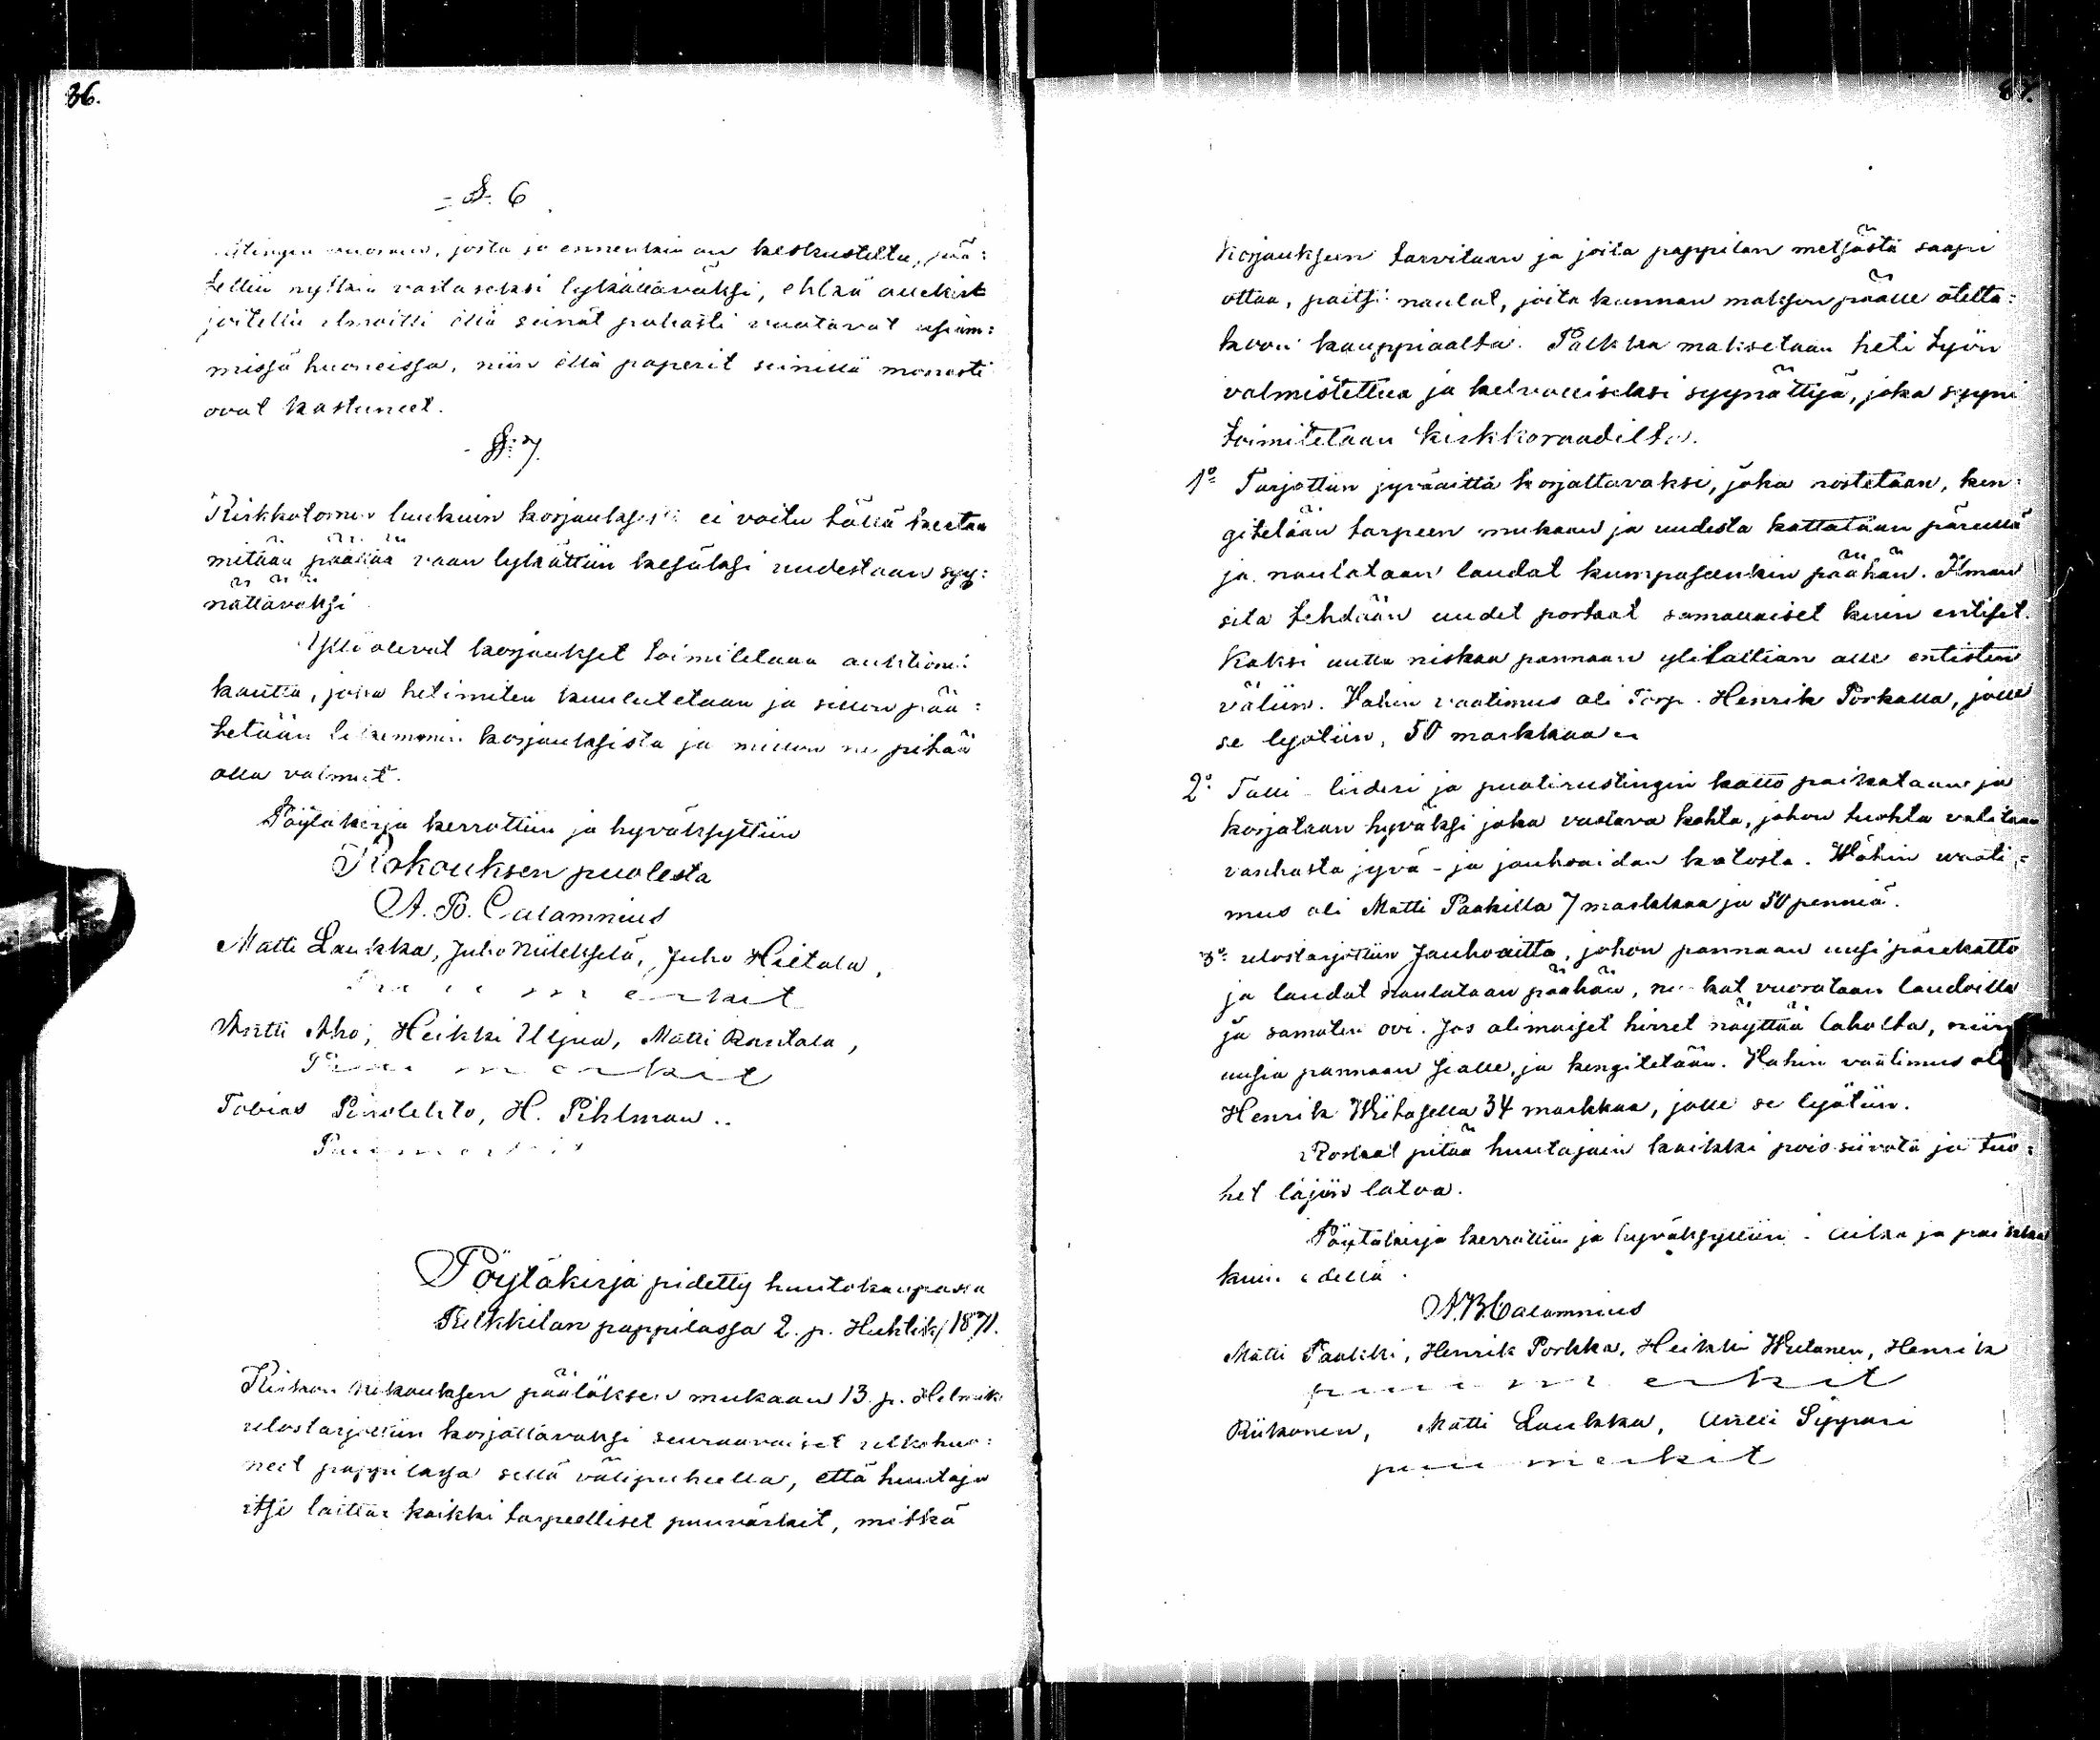 36.
§. 6
josta jo ennenkin on keskusteltu, pää:
tettiin nytkin vastaseksi lykättäväksi, ehkä allekir
joitettu ilmoitti että seinät pahasti vuotavat usiim:
missä huoneissa, niin että paperit seinillä monesti
ovat kastuneet.
§: 7.
Kirkkotornin luukuin korjauksesta ei voitu tällä kertaa
mitään päättää vaan lykättiin kesäksi uudestaan syy:
nättäväksi
Yllä olevat korjaukset toimitetaan auktioni
kautta, joka hetimiten kuulutetaan ja silloin pää:
tetään likemmin korjauksista ja milloin ne pitää
olla valmiit.
Pöytäkirja kerrottiin ja hyväksyttiin
Kokouksen puolesta
A. B. Calamnius
Matti Laukka, Juho Niilekselä, Juho Hietala,
Puumerkit
Antti Aho, Heikki Uljua, Matti Rantala,
Puumerkit
Tobias Pirolehto, H. Pihlman..
Puumerkit
Pöytäkirja pidetty huutokaupassa
Pulkkilan pappilassa 2. p. Huhtik. 1871.
Kirkon kokouksen päätöksen mukaan 13. p. Helmik.
ulostarjottiin korjattavaksi seuraavaiset ulkohuo:
neet pappilassa sellä välipuheella, että huutaja
itse laittaa kaikki tarpeelliset puuvärkit, mitkä
87.
korjaukseen tarvitaan ja joita pappilan metsästä saapi
ottaa, paitsi naulat, joita kunnan maksun päälle otetta:
koon kauppiaalta. Palkka maksetaan heti työn
valmistettua ja kelvolliseksi syynättyä, joka syyni
toimitetaan kirkkoraadilta.
1º Tarjottiin jyväaitta korjattavaksi, joka nostetaan, ken:
gitetään tarpeen mukaan ja uudesta kattetaan päreillä
ja naulataan laudat kumpaseenkin päähän. Ilman
sitä tehdään uudet portaat samallaiset kuin entiset.
Kaksi uutta niskaa pannaan ylilattian alle entisten
väliin. Vähin vaatimus oli Torp. Henrik Porkalla, jolle
se lyötiin, 50 markkaa
2º Talli- liideri ja puotirustingin katto paikataan ja
korjataan hyväksi joka vastava kohta, johon tuohta valitaan
vanhasta jyvä- ja jauhoaidan katosta. Wähin vaati:
mus oli Matti Paakilla 7 markkaa ja 50 penniä.
3º ulostarjottiin Jauhoaitta, johon pannaan uusi pärekatto
ja laudat naulataan päähän, nurkat vuorataan laudoilla
ja samaten ovi. Jos alimaiset hirret näyttää laholta, niin
uusia pannaan sialle, ja kengitetään. Vähin vaatimus oli
Henrik Wiitasella 34 markkaa, jolle se lyötiin.
Roskat pitää huutajain kaikki pois siivota ja tuo:
het läjiin latoa.
Pöytäkirja kerrottiin ja hyväksyttiin. Aika ja paikka
kuin edellä.
A.B. Calamnius
Matti Paakki, Henrik Porkka, Heikki Wiitanen, Henrik
puumerkit
Riikonen, Matti Laukka, Antti Sippari
puumerkit